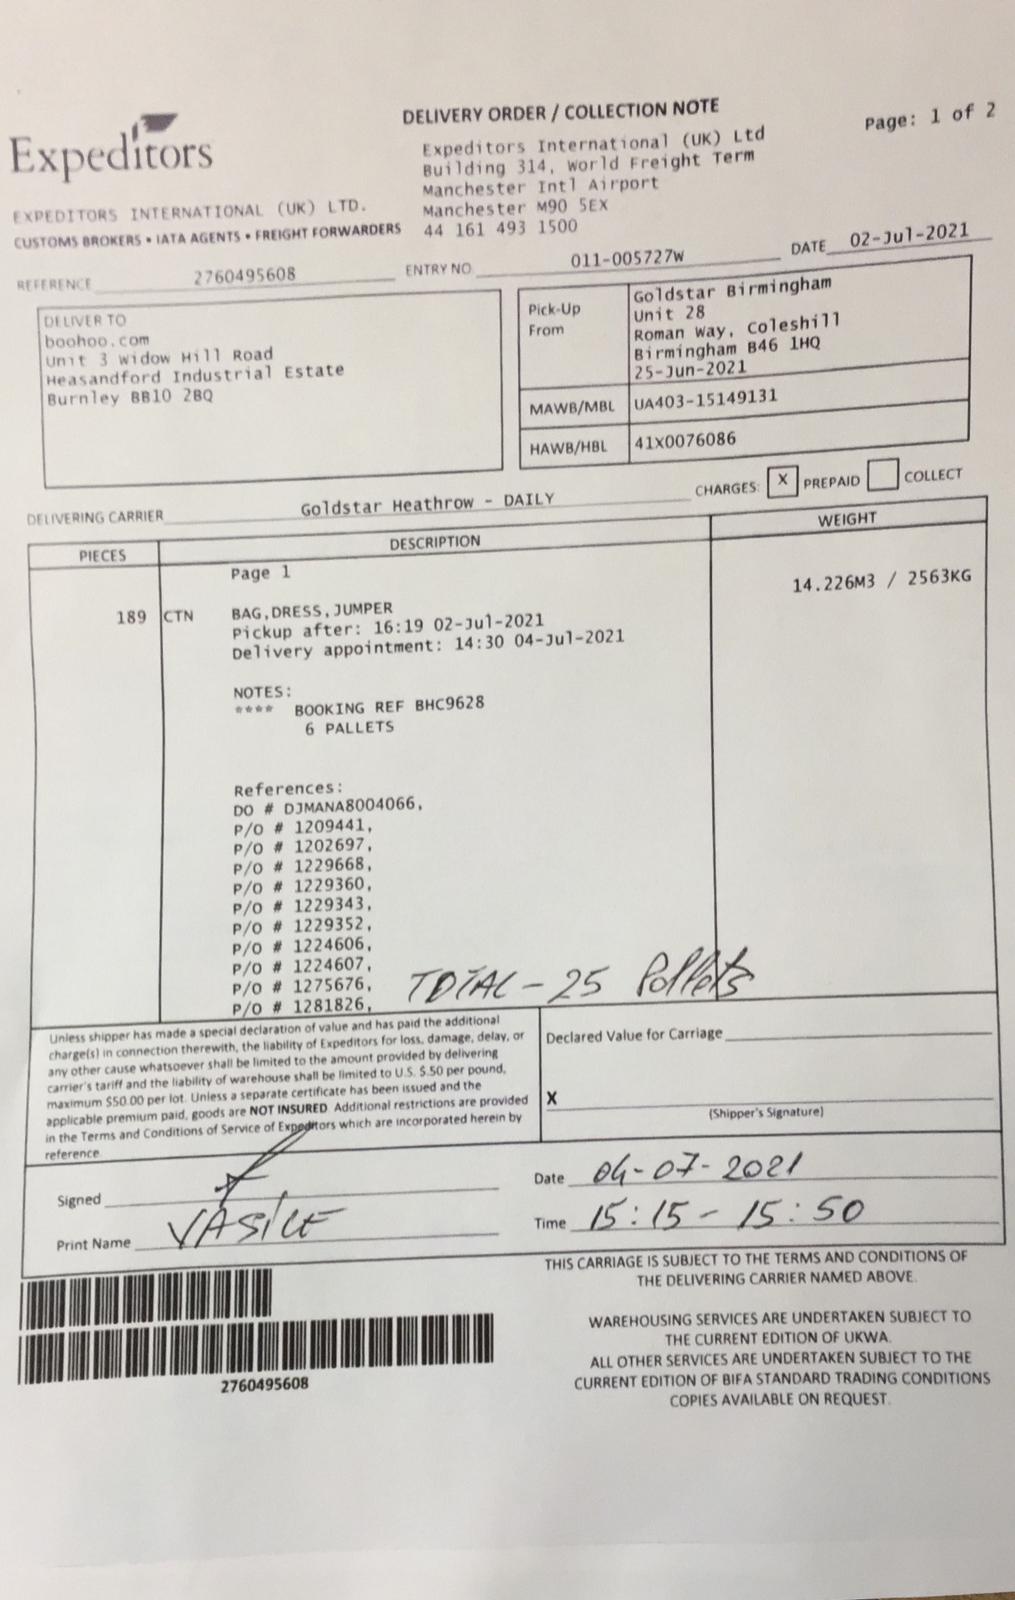 DELIVERY ORDER / COLLECTION NOTE
Page: 1 of 2
Expeditors
Expeditors International (UK) Ltd
Building 314, World Freight Term
Manchester Intl Airport
Manchester M90 5EX
44 161 493 1500
EXPEDITORS INTERNATIONAL (UK) LTD.
CUSTOMS BROKERS • IATA AGENTS • FREIGHT FORWARDERS
REFERENCE 2760495608 ENTRY NO 011-005727W DATE 02-Jul-2021
DELIVER TO
boohoo.com
Unit 3 Widow Hill Road
Heasandford Industrial Estate
Burnley BB10 2BQ
Pick-Up From
Goldstar Birmingham
Unit 28
Roman Way, Coleshill
Birmingham B46 1HQ
25-Jun-2021
MAWB/MBL UA403-15149131
HAWB/HBL 41X0076086
DELIVERING CARRIER Goldstar Heathrow - DAILY CHARGES: X PREPAID COLLECT
PIECES DESCRIPTION WEIGHT
Page 1 14.226M3 / 2563KG
189 CTN BAG,DRESS,JUMPER
Pickup after: 16:19 02-Jul-2021
Delivery appointment: 14:30 04-Jul-2021
NOTES:
**** BOOKING REF BHC9628
6 PALLETS
References:
DO # DJMANA8004066,
P/O # 1209441,
P/O # 1202697,
P/O # 1229668,
P/O # 1229360,
P/O # 1229343,
P/O # 1229352,
P/O # 1224606,
P/O # 1224607,
P/O # 1275676,
P/O # 1281826,
TOTAL - 25 Pollets
Unless shipper has made a special declaration of value and has paid the additional
charge(s) in connection therewith, the liability of Expeditors for loss, damage, delay, or
any other cause whatsoever shall be limited to the amount provided by delivering
carrier's tariff and the liability of warehouse shall be limited to U.S. $.50 per pound,
maximum $50.00 per lot. Unless a separate certificate has been issued and the
applicable premium paid, goods are NOT INSURED. Additional restrictions are provided
in the Terms and Conditions of Service of Expeditors which are incorporated herein by
reference.
Declared Value for Carriage
X
(Shipper's Signature)
Signed
Print Name VASILE
Date 04-07-2021
Time 15:15 - 15:50
2760495608
THIS CARRIAGE IS SUBJECT TO THE TERMS AND CONDITIONS OF
THE DELIVERING CARRIER NAMED ABOVE.
WAREHOUSING SERVICES ARE UNDERTAKEN SUBJECT TO
THE CURRENT EDITION OF UKWA.
ALL OTHER SERVICES ARE UNDERTAKEN SUBJECT TO THE
CURRENT EDITION OF BIFA STANDARD TRADING CONDITIONS
COPIES AVAILABLE ON REQUEST.